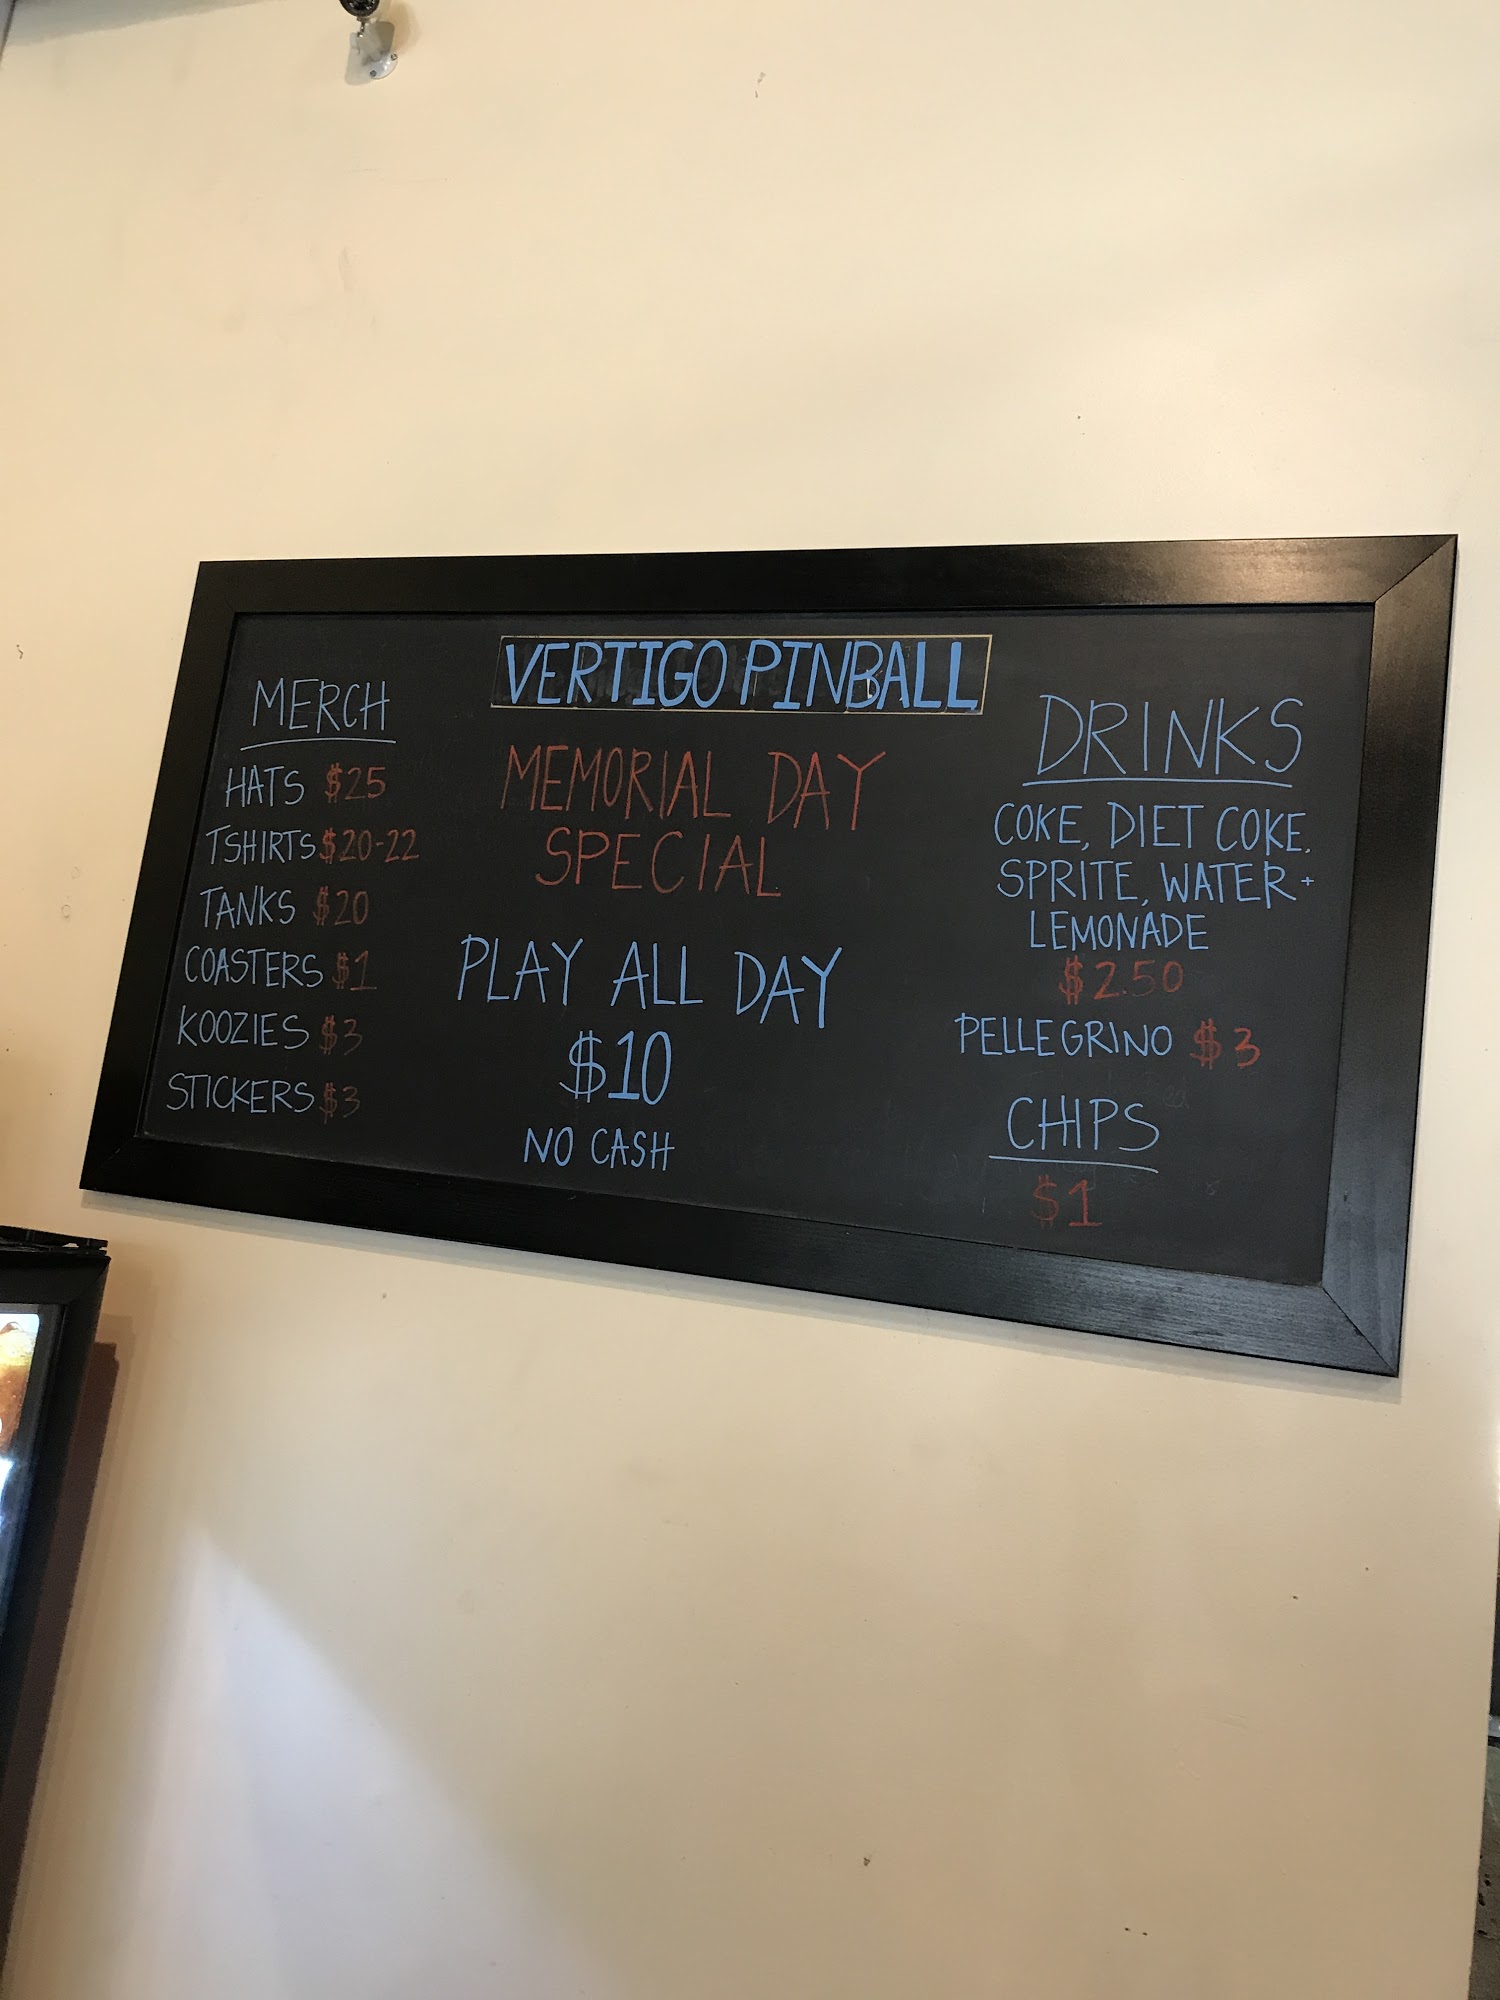 VERTIGO PINBALL
MERCH
HATS $25
TSHIRTS $20-22
TANKS $20
COASTERS $1
KOOZIES $3
STICKERS $3
MEMORIAL DAY
SPECIAL
PLAY ALL DAY
$10
NO CASH
DRINKS
COKE, DIET COKE,
SPRITE, WATER +
LEMONADE
$2.50
PELLEGRINO $3
CHIPS
$1